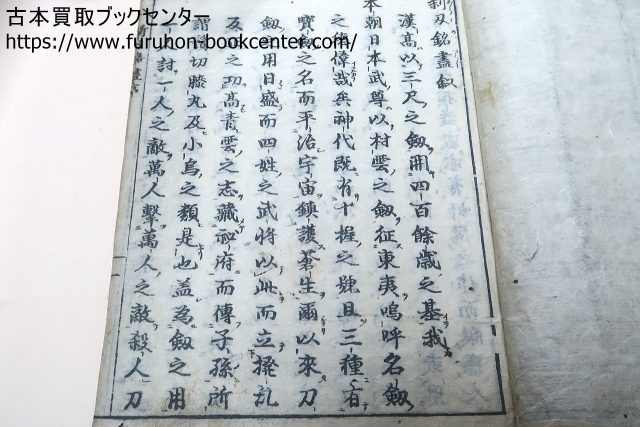 古本買取ブックセンター
https://www.furuhon-bookcenter.com/
利刃銘盡叙
漢高以三尺之劔開四百餘歳之基我
本朝日本武尊以村雲之劔征東夷嗚呼名劔
之徳偉哉矣神代既有十握之號且三種有
寳劔之名而平治宇宙鎮護蒼生爾以來刀
劔之用日盛而四姓之武将以此而立撥乱
及之功高青雲之志藏祕府而傳子孫所
謂切膝九及小烏之類是也盖為劔之用
一討一人之敵萬人撃萬人之敵殺人刀